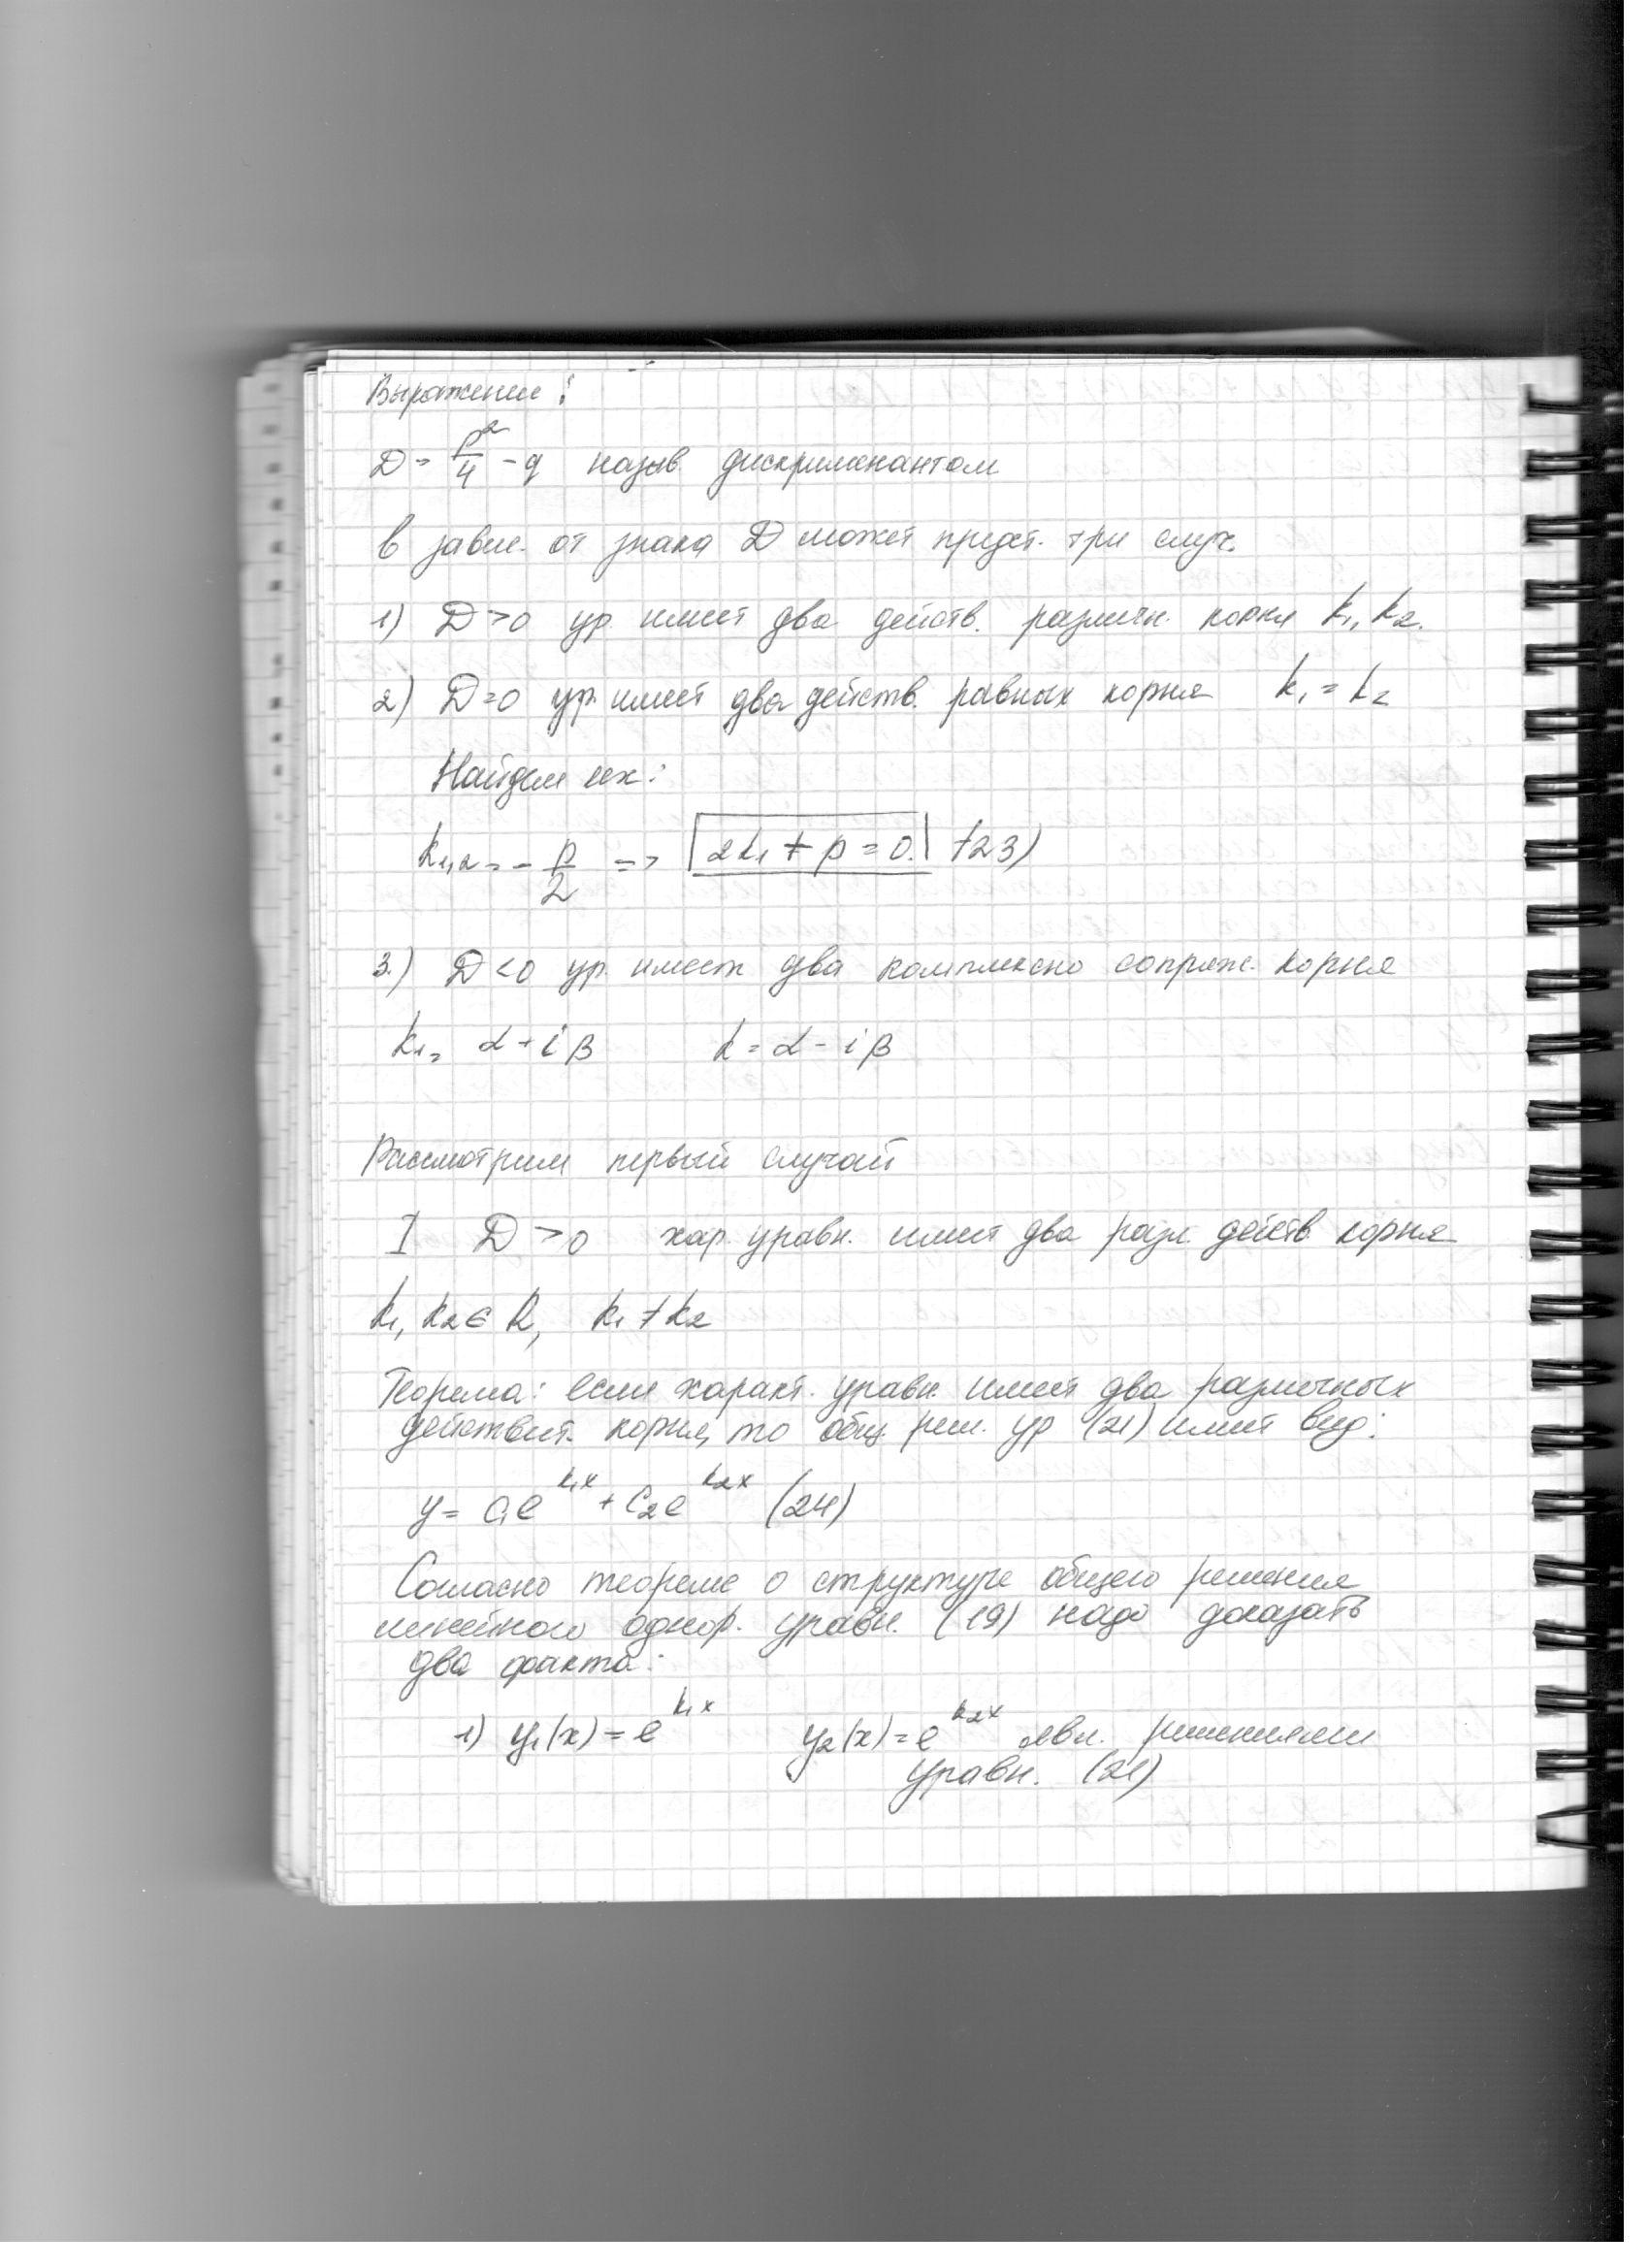 Выражение:
D = p²/4 - q назыв дискриминантом
в завис. от знака D может предст. три случ.
1) D > 0 ур имеет два действ. различн. корня k₁, k₂.
2) D = 0 ур. имеет два действ. равных корня k₁ = k₂
Найдем их:
k₁,₂ = - p/2 => 2k₁ + p = 0. (23)
3.) D < 0 ур. имеет два комплексно сопряж. корня
k₁ = α + iβ k = α - iβ
Рассмотрим первый случай
I D > 0 хар. уравн. имеет два разл. действ корня
k₁, k₂ ∈ R, k₁ ≠ k₂
Теорема: если характ. уравн. имеет два различных
действит. корня, то общ. реш. ур (21) имеет вид:
y = c₁e^k₁x + c₂e^k₂x (24)
Согласно теореме о структуре общего решения
линейного однор. уравн. (19) надо доказать
два факта:
1) y₁(x) = e^k₁x y₂(x) = e^k₂x явл. решениями
уравн. (21)